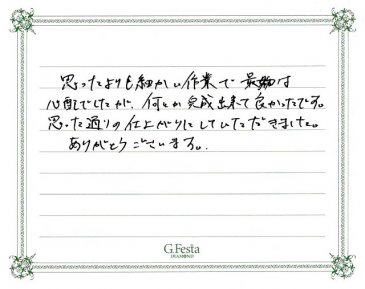 思ったよりも細かい作業で最初は
心配でしたが、何とか完成出来て良かったです。
思った通りの仕上がりにしていただきました。
ありがとうございます。
G.Festa
DIAMOND